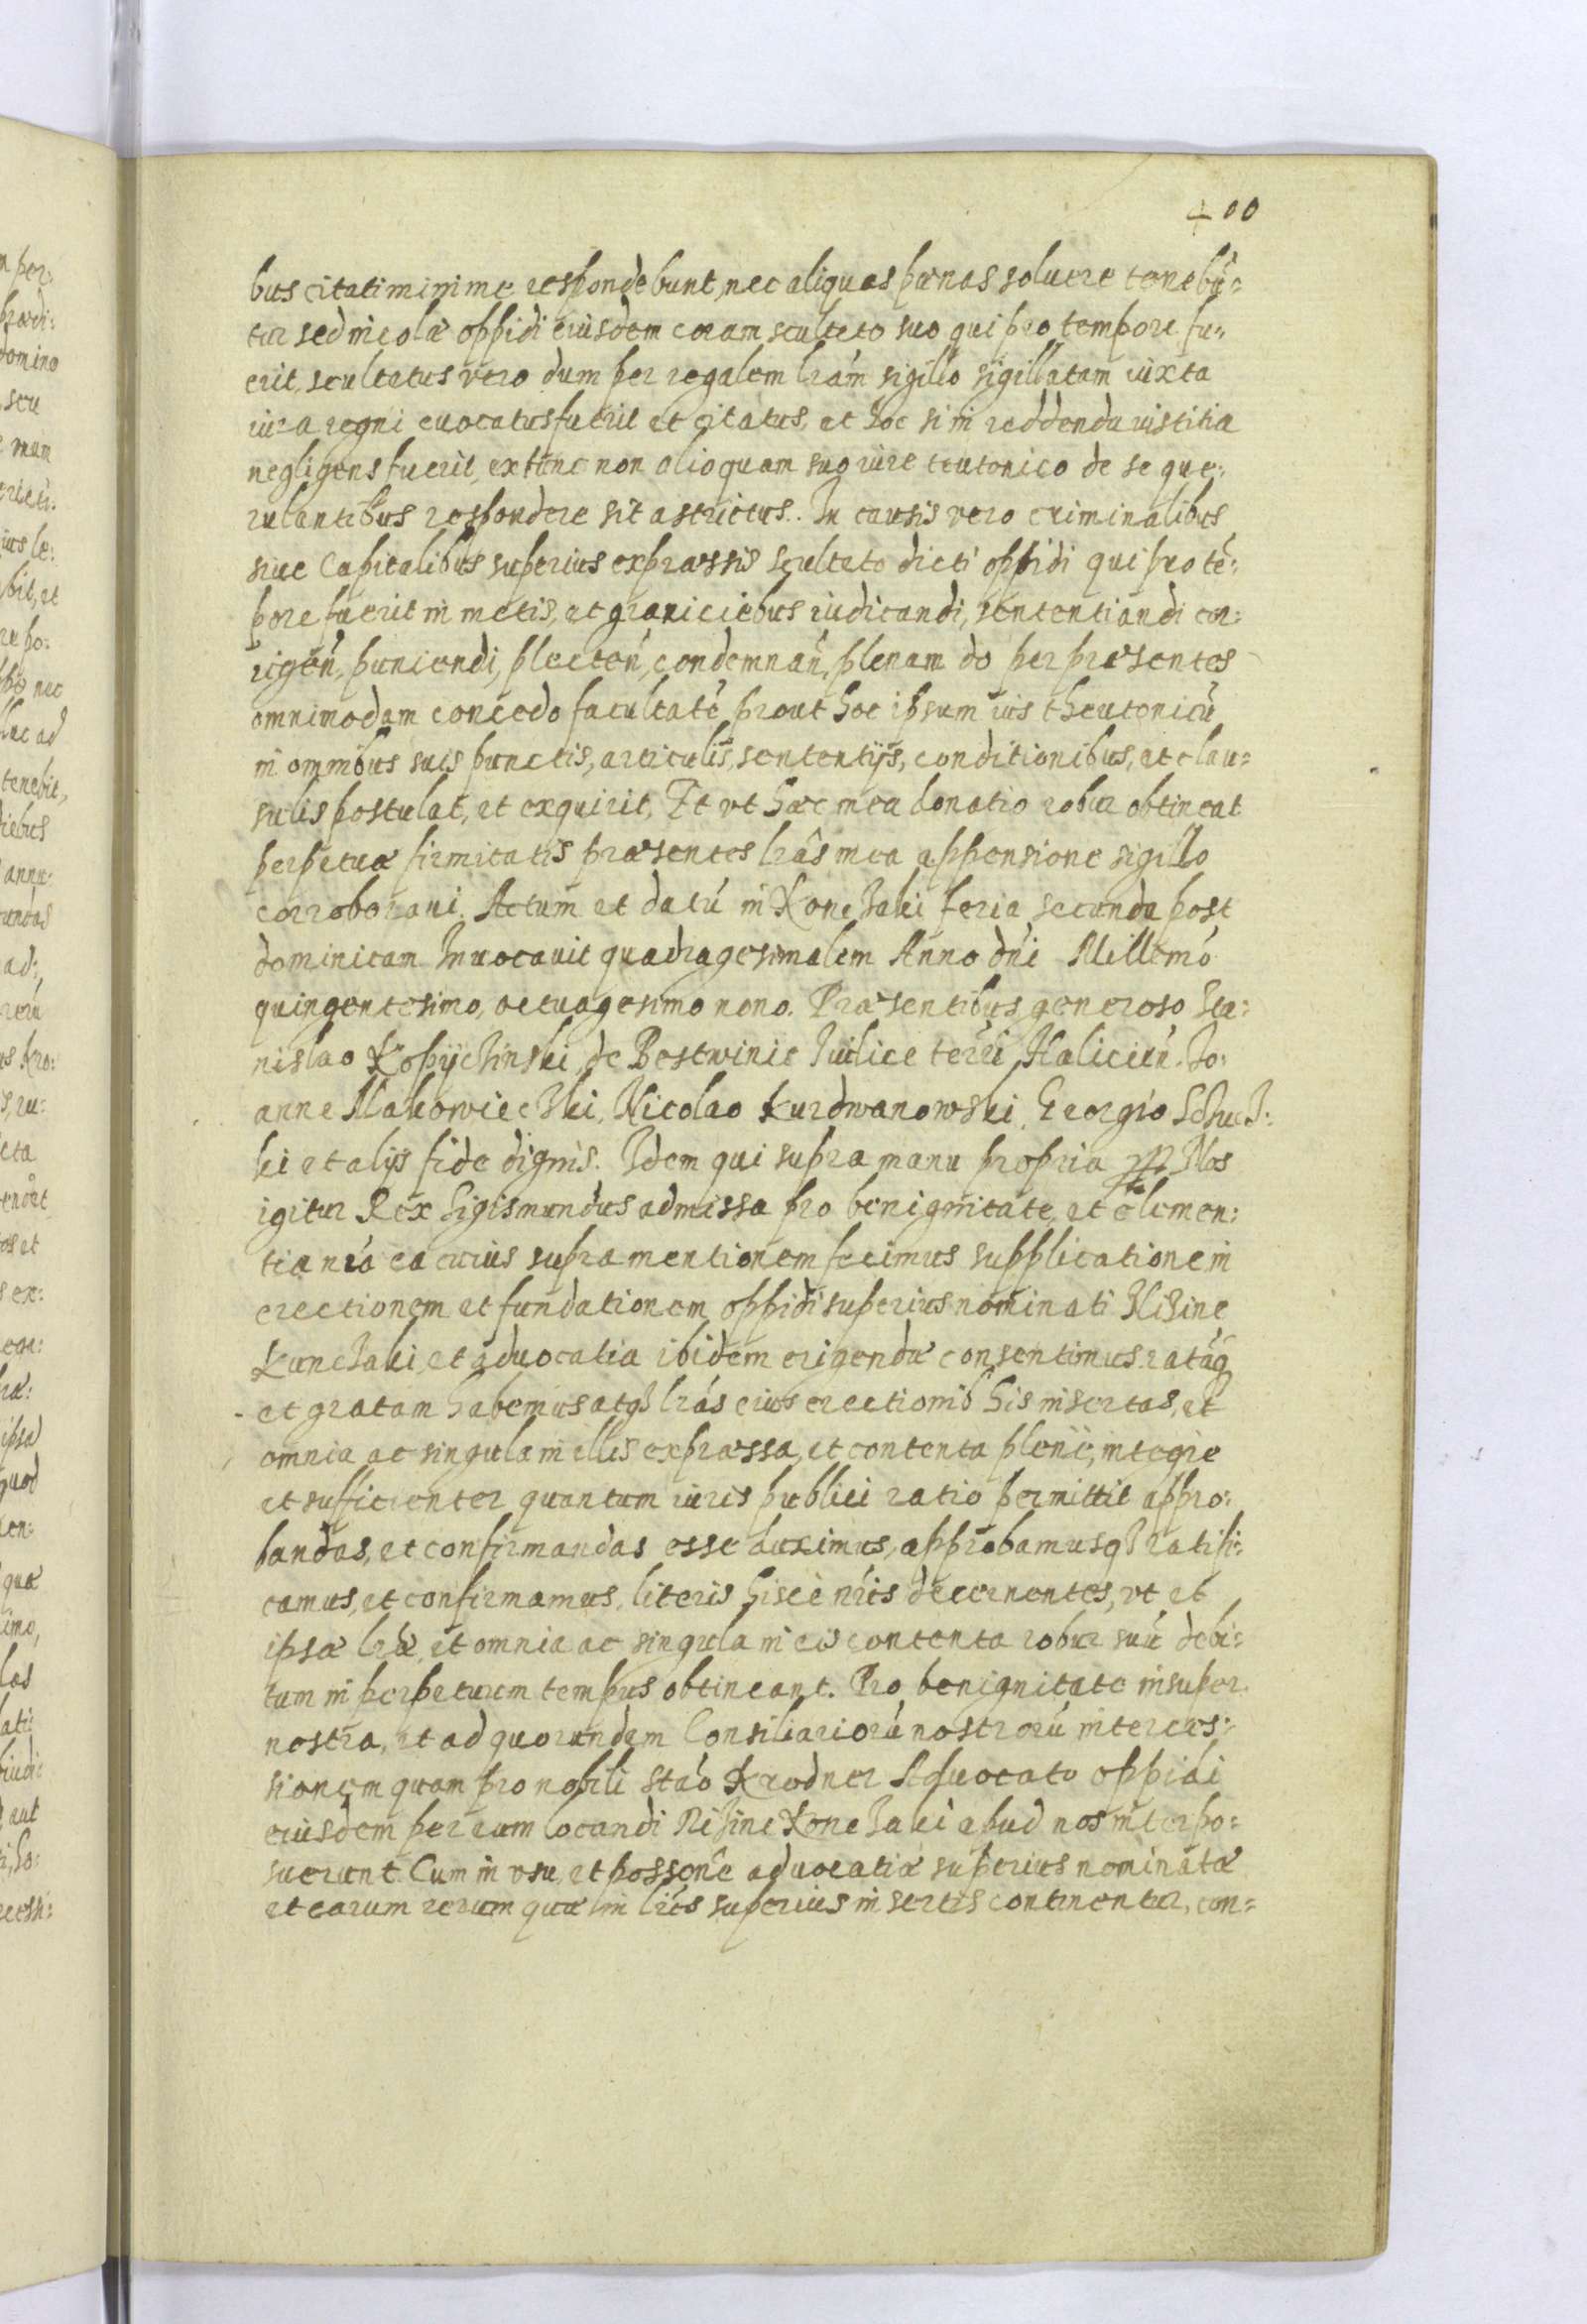 400
bus citati minime respondebunt, nec aliquas pænas soluere tenebũ=
tur sed incolæ oppidi eiusdem coram sculteto suo qui pro tempore fu=
erit, scultetus vero dum per regalem lrám sigillo sigillatam iuxta
iura regni euocatus fuerit et citatus, et hoc si in reddenda iustitia
negligens fuerit, extunc non alio quam suo iure teutonico de se que:
rulantibus respondere sit astrictus. In causis vero criminalibus
siue Capitalibus superius expræssis sculteto dicti oppidi qui pro tẽ:
pore fuerit in metis, et graniciebus iudicandi, sententiandi cor:
rigeń, puniendi, plecteń, condemnań, plenam do per præsentes
omnimodam concedo facultatẽ prout hoc ipsum ius theutonicũ
in omnibus suis punctis, articulis, sententijs, conditionibus, et clau=
sulis postulat, et exquirit, Et vt hæc mea donatio robur obtineat
perpetuæ firmitatis præsentes lrâs mea appensione sigillo
corroboraui. Actum et datú in Konczaki feria secunda post
dominicam Inuocauit quadragesimalem Anno dńi Millemó
quingentesimo, octuagesimo nono. Præsentibus generoso Sta:
nislao Kopijczinski de Bestwinie Iudice terrí Halicień. Io:
anne Makowieczki, Nicolao Kurdwanowski, Georgio Schucz:
ki et alijs fide dignis. Idem qui supra manu propria Nos
igitur Rex Sigismundus admissa pro benignitate, et clemen:
tia nrá ea cuius supra mentionem fecimus supplicatione in
erectionem et fundationem oppidi superius nominati Nizine
Kunczaki, et aduocatia ibidem erigendæ consentimus, ratáq
et gratam habemus atqз lrás eius erectionis his insertas, et
omnia ac singula in illis expræssa, et contenta plenè, integre
et sufficienter quantum iuris publici ratio permittit appro:
bandas, et confirmandas esse duximus, approbamusqз ratifi:
camus, et confirmamus, literis hisce nrís decernentes, vt et
ipsæ lræ, et omnia ac singula in eis contenta robur suũ debi=
tum in perpetuum tempus obtineant. Pro benignitate insuper
nostra, et ad quorundam Consiliariorú nostrorú interces:
sionem quam pro nobili Stáo Krodner Aduocato oppidi
eiusdem per eum locandi Nizine Konczaki apud nos interpo:
suerunt Cum in vsu, et possonê aduocatiæ superius nominatæ
et earum rerum quæ in lrís superius insertis continentur, con=